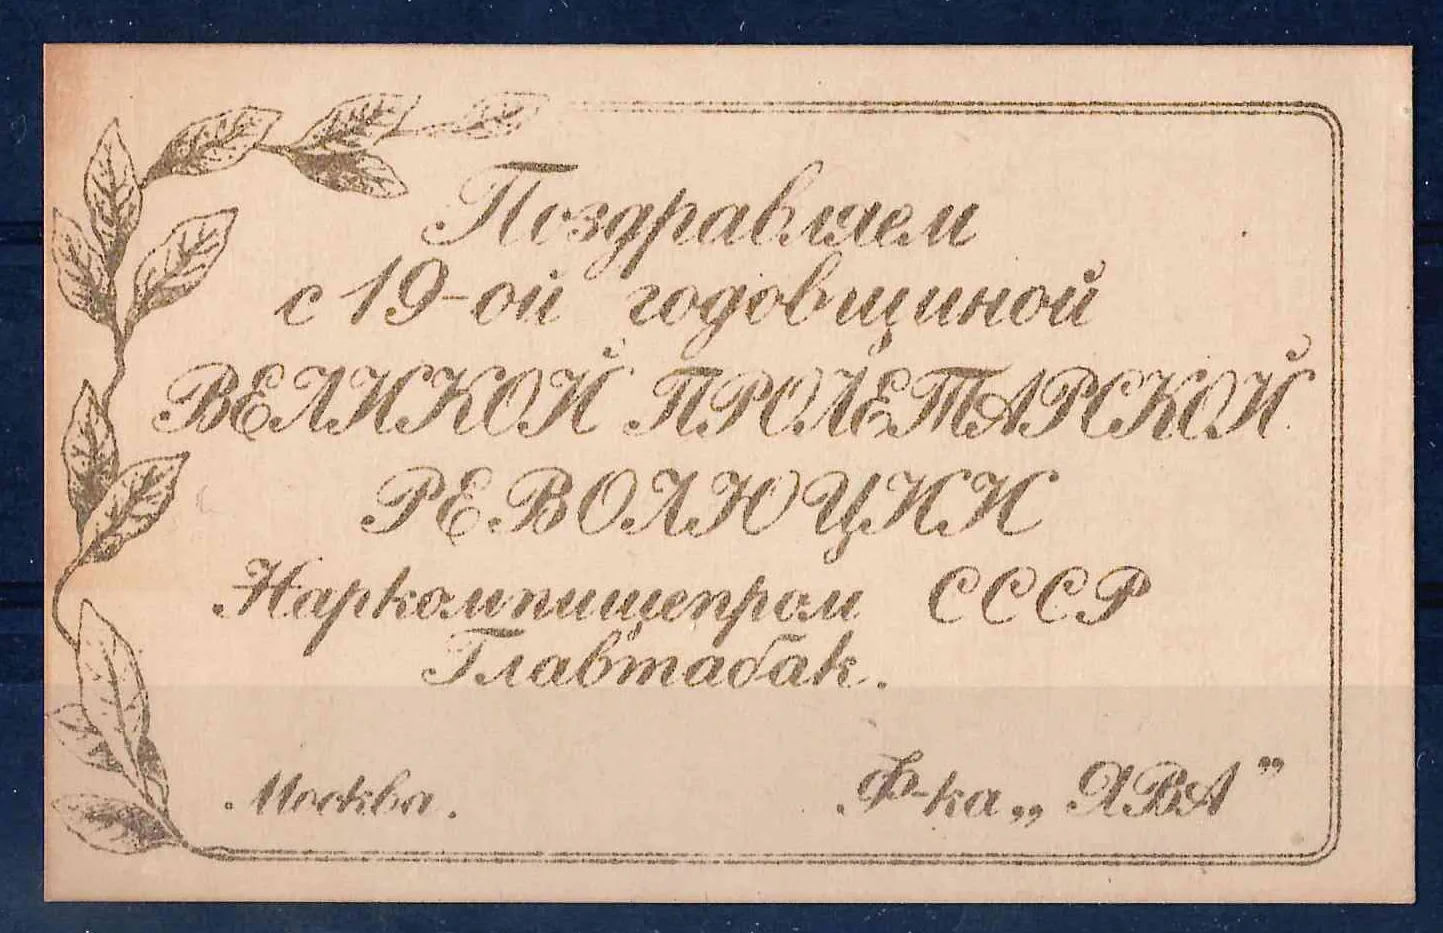 Поздравляем
с 19-ой годовщиной
ВЕЛИКОЙ ПРОЛЕТАРСКОЙ
РЕВОЛЮЦИИ
Наркомпищепром СССР
Главтабак.
Москва. Ф-ка „ЯВА”